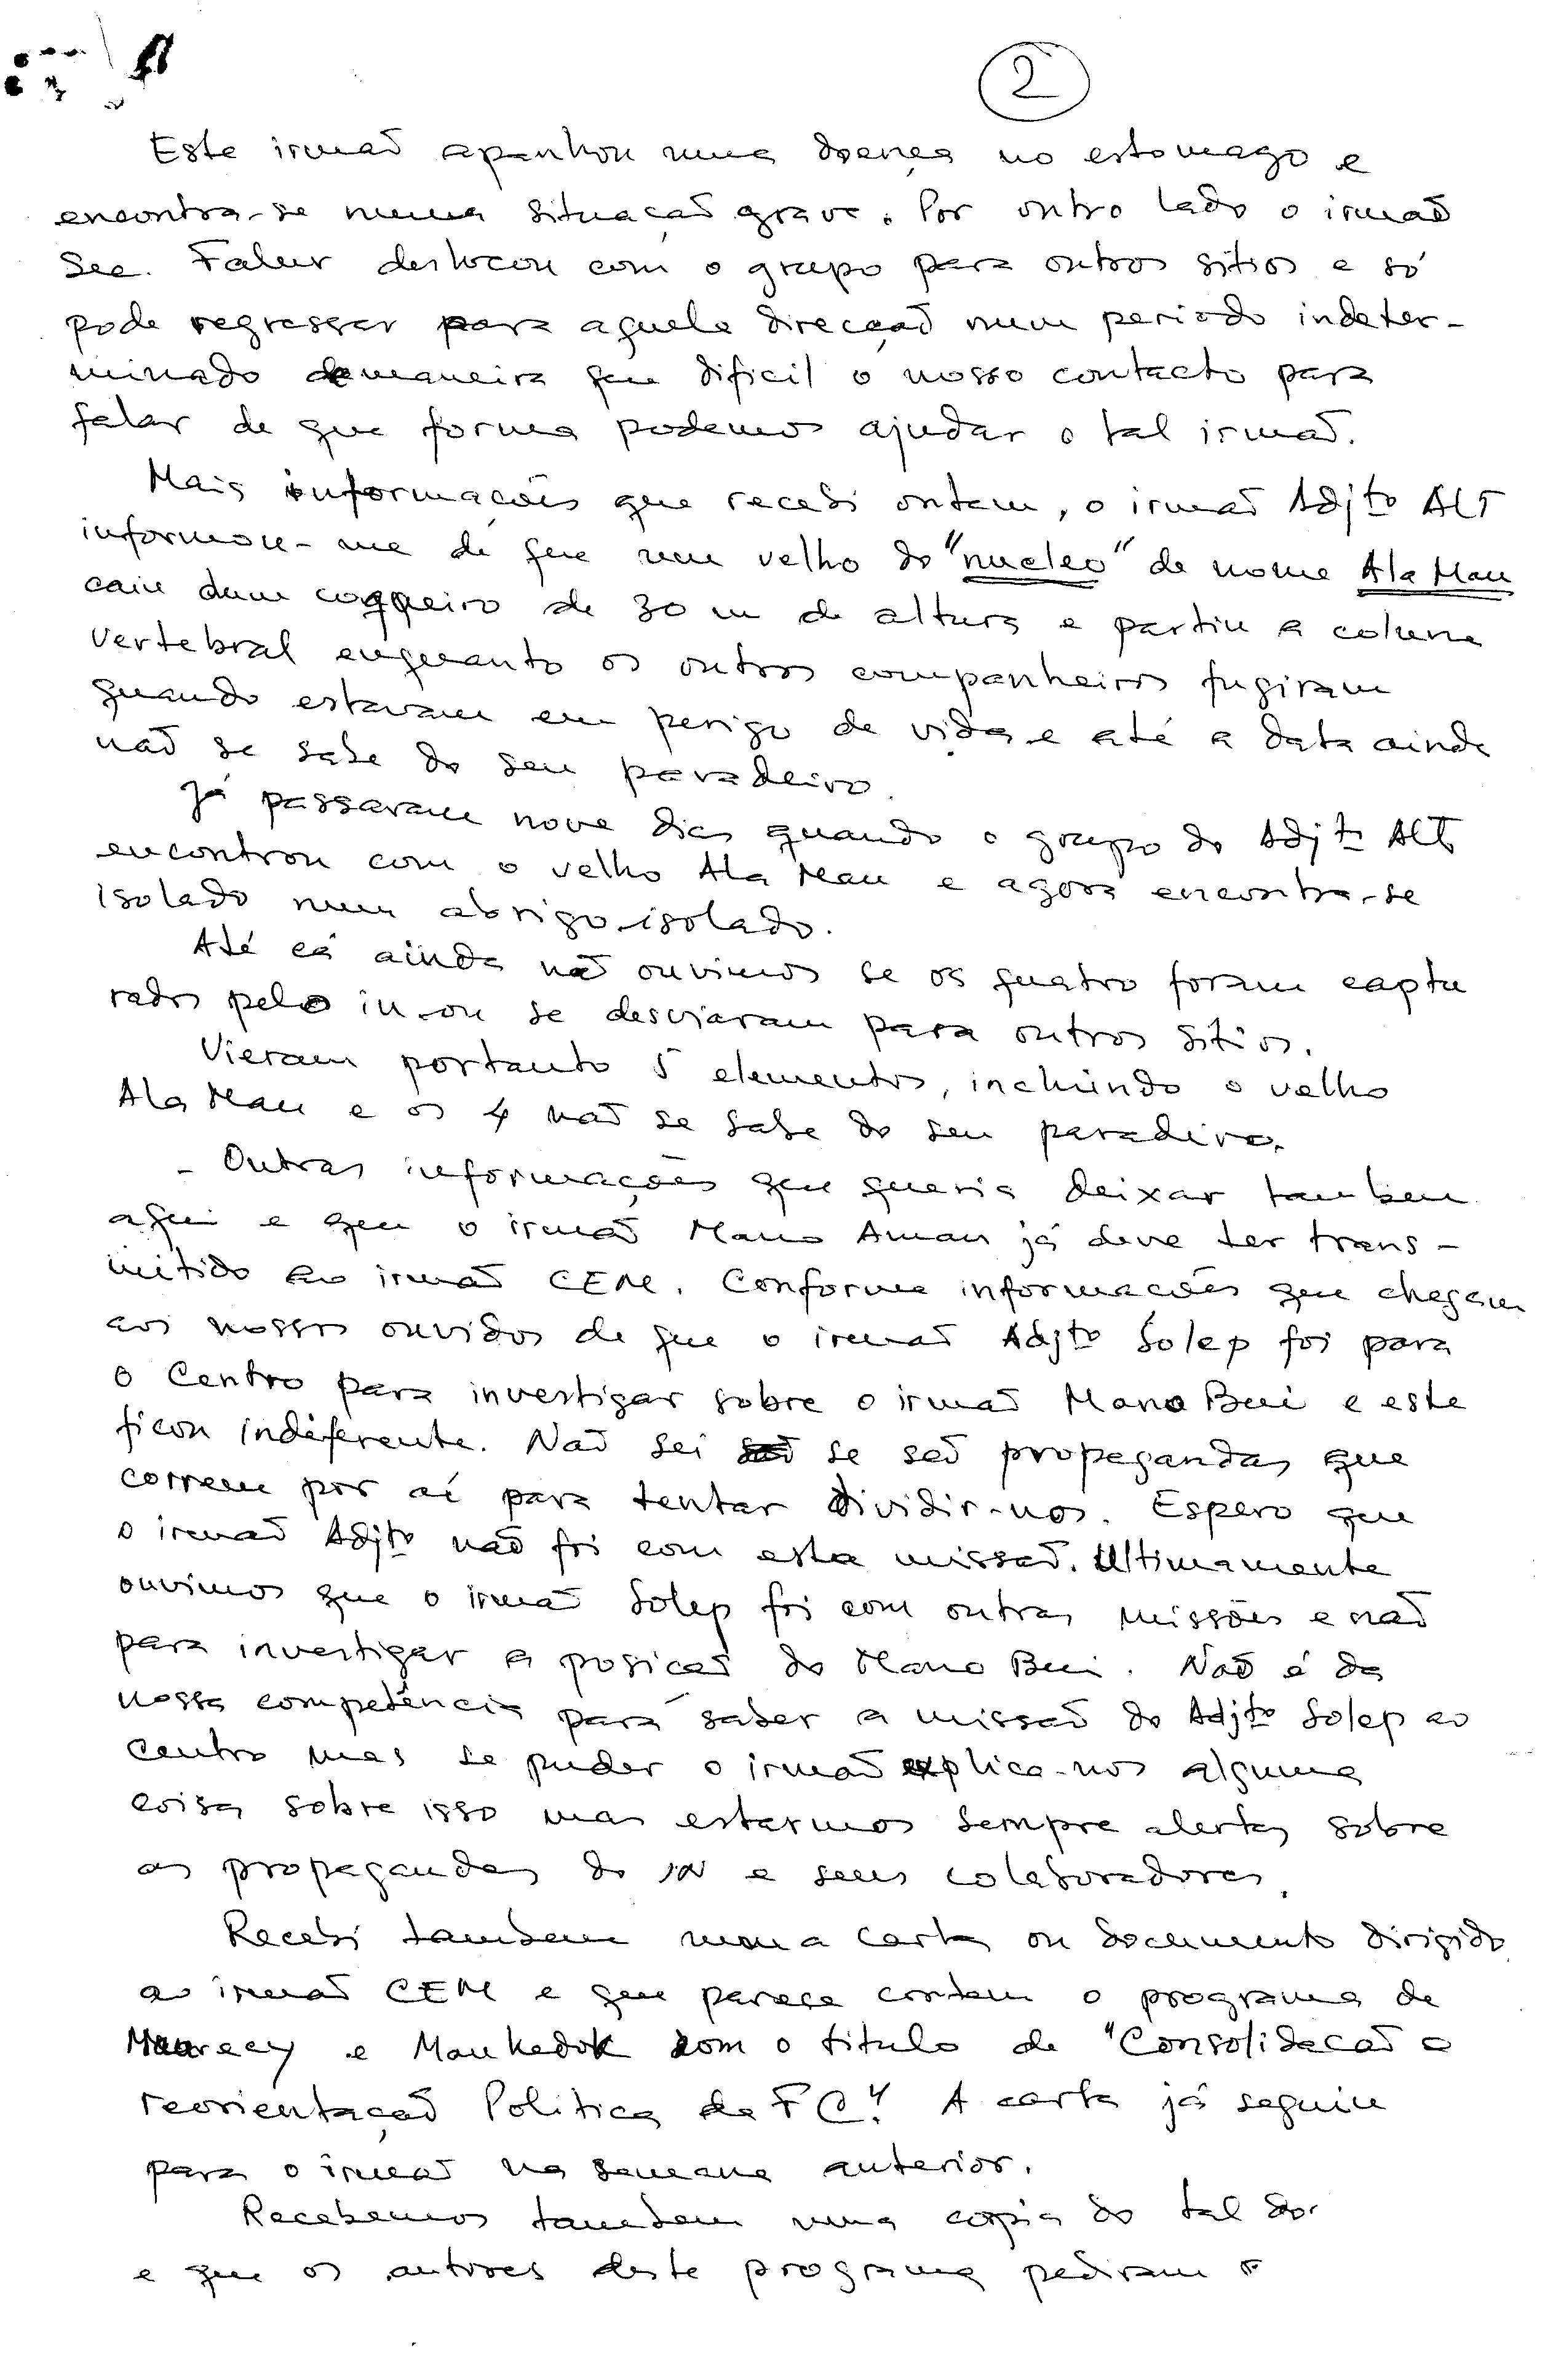 2
Este irmaõ apanhou uma doença no estomago e
encontra-se numa situaçaõ grave. Por outro lado o irmaõ
Sec. Falur deslocou com o grupo para outros sitios e só
pode regressar para aquela direcçaõ num periodo indeter-
minado de maneira que dificil o nosso contacto para
falar de que forma podemos ajudar o tal irmaõ.
Mais informações que recebi ontem, o irmaõ Adjto ALT
informou-me de que um velho do "nucleo" de nome Ala Mau
caiu dum coqueiro de 30 m de altura e partiu a coluna
vertebral enquanto os outros companheiros fugiram
quando estavam em perigo de vida e até a data ainda
naõ se sabe do seu paradeiro.
Já passaram nove dias quando o grupo do Adjto ALT
encontrou com o velho Ala Mau e agora encontra-se
isolado num abrigo isolado.
Até cá ainda naõ ouvimos se os quatro foram captu
rados pelo in ou se desviaram para outros sitios.
Vieram portanto 5 elementos, incluindo o velho
Ala Mau e os 4 naõ se sabe do seu paradeiro.
- Outras informações que queria deixar tambem
aqui e que o irmaõ Mano Aman já deve ter trans-
mitido ao irmaõ CEM. Conforme informações que chegam
aos nossos ouvidos de que o irmaõ Adjto Solep foi para
o Centro para investigar sobre o irmaõ Mano Bui e este
ficou indiferente. Naõ sei se saõ propagandas que
correm por aí para tentar dividir-nos. Espero que
o irmaõ Adjto naõ foi com esta missaõ. Ultimamente
ouvimos que o irmaõ Solep foi com outras missões e naõ
para investigar a posicaõ do Mano Bui. Naõ é da
nossa competência para saber a missaõ do Adjto Solep ao
centro mas se puder o irmaõ explica-nos alguma
coisa sobre isso mas estarmos sempre alertas sobre
as propagandas do IN e seus colaboradores.
Recebi tambem uma carta ou documento dirigido
ao irmaõ CEM e que parece contem o programa de
e Maukedok com o titulo de "Consolidacaõ e
reorientaçaõ Politica da FC". A carta já seguiu
para o irmaõ na semana anterior.
Recebemos tambem uma copia do tal doc
e que os autores deste programa pediram